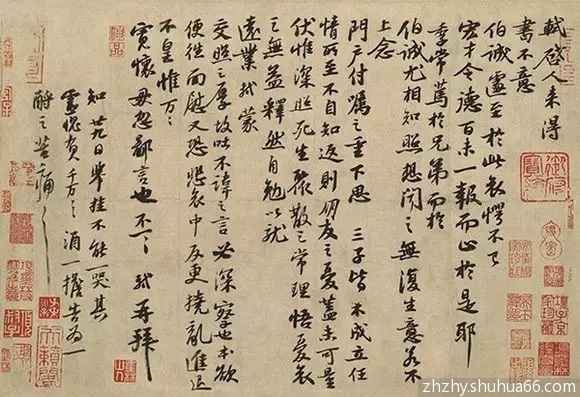 軾啓人来得
書不意
伯誠遽至於此哀愕不已
宏才令德百未一報而止於是耶
季常篤於兄弟而於
伯誠尤相知照想聞之無復生意若不
上念
門户付囑之重下思三子皆未成立任
情所至不自知返則朋友之憂蓋未可量
伏惟深照死生聚散之常理悟憂哀
之無益釋然自勉以就
遠業軾蒙
交照之厚故吐不諱之言必深察也本欲
便往面慰又恐悲哀中反更撓亂進退
不皇惟万〻
寬懷毋忽鄙言也不一〻軾再拜
知廿九日舉挂不能一哭其
靈愧負千万〻酒一擔告為一
酹之苦痛〻
zhzhy.shuhua66.com